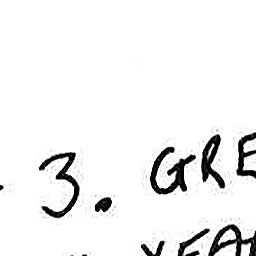 3. GRE
YEA